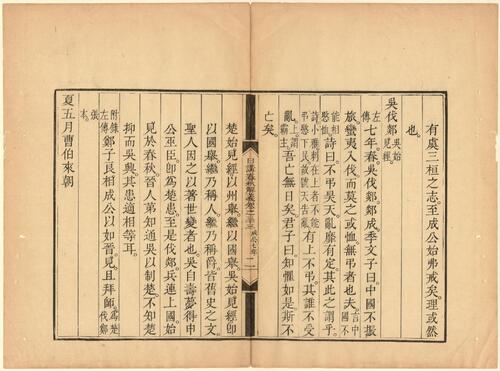 有虞三桓之志至成公始弗戒矣理或然
也
吳伐郯吳始見經
左傳七年春吳伐郯郯成季文子曰中國不振
旅蠻夷入伐而莫之或恤無弔者也夫言中國不
能相愍恤詩曰不弔昊天亂靡有定其此之謂乎
詩小雅刺在上者不能弔愍下民故號天告亂有上不弔其誰不受
亂上謂霸主吾亡無日矣君子曰知懼如是斯不
亡矣
日講春秋解義卷之 成公七年
楚始見經以州舉繼以國舉吳始見經卽
以國舉繼乃稱人繼乃稱爵皆舊史之文
聖人因之以著世變者也吳自壽夢得申
公巫臣卽爲楚患至是伐郯兵連上國始
見於春秋晉人第知通吳以制楚不知楚
抑而吳興其患適相等耳
附錄左傳鄭子良相成公以如晉見且拜師爲楚伐鄭
張本
夏五月曹伯來朝